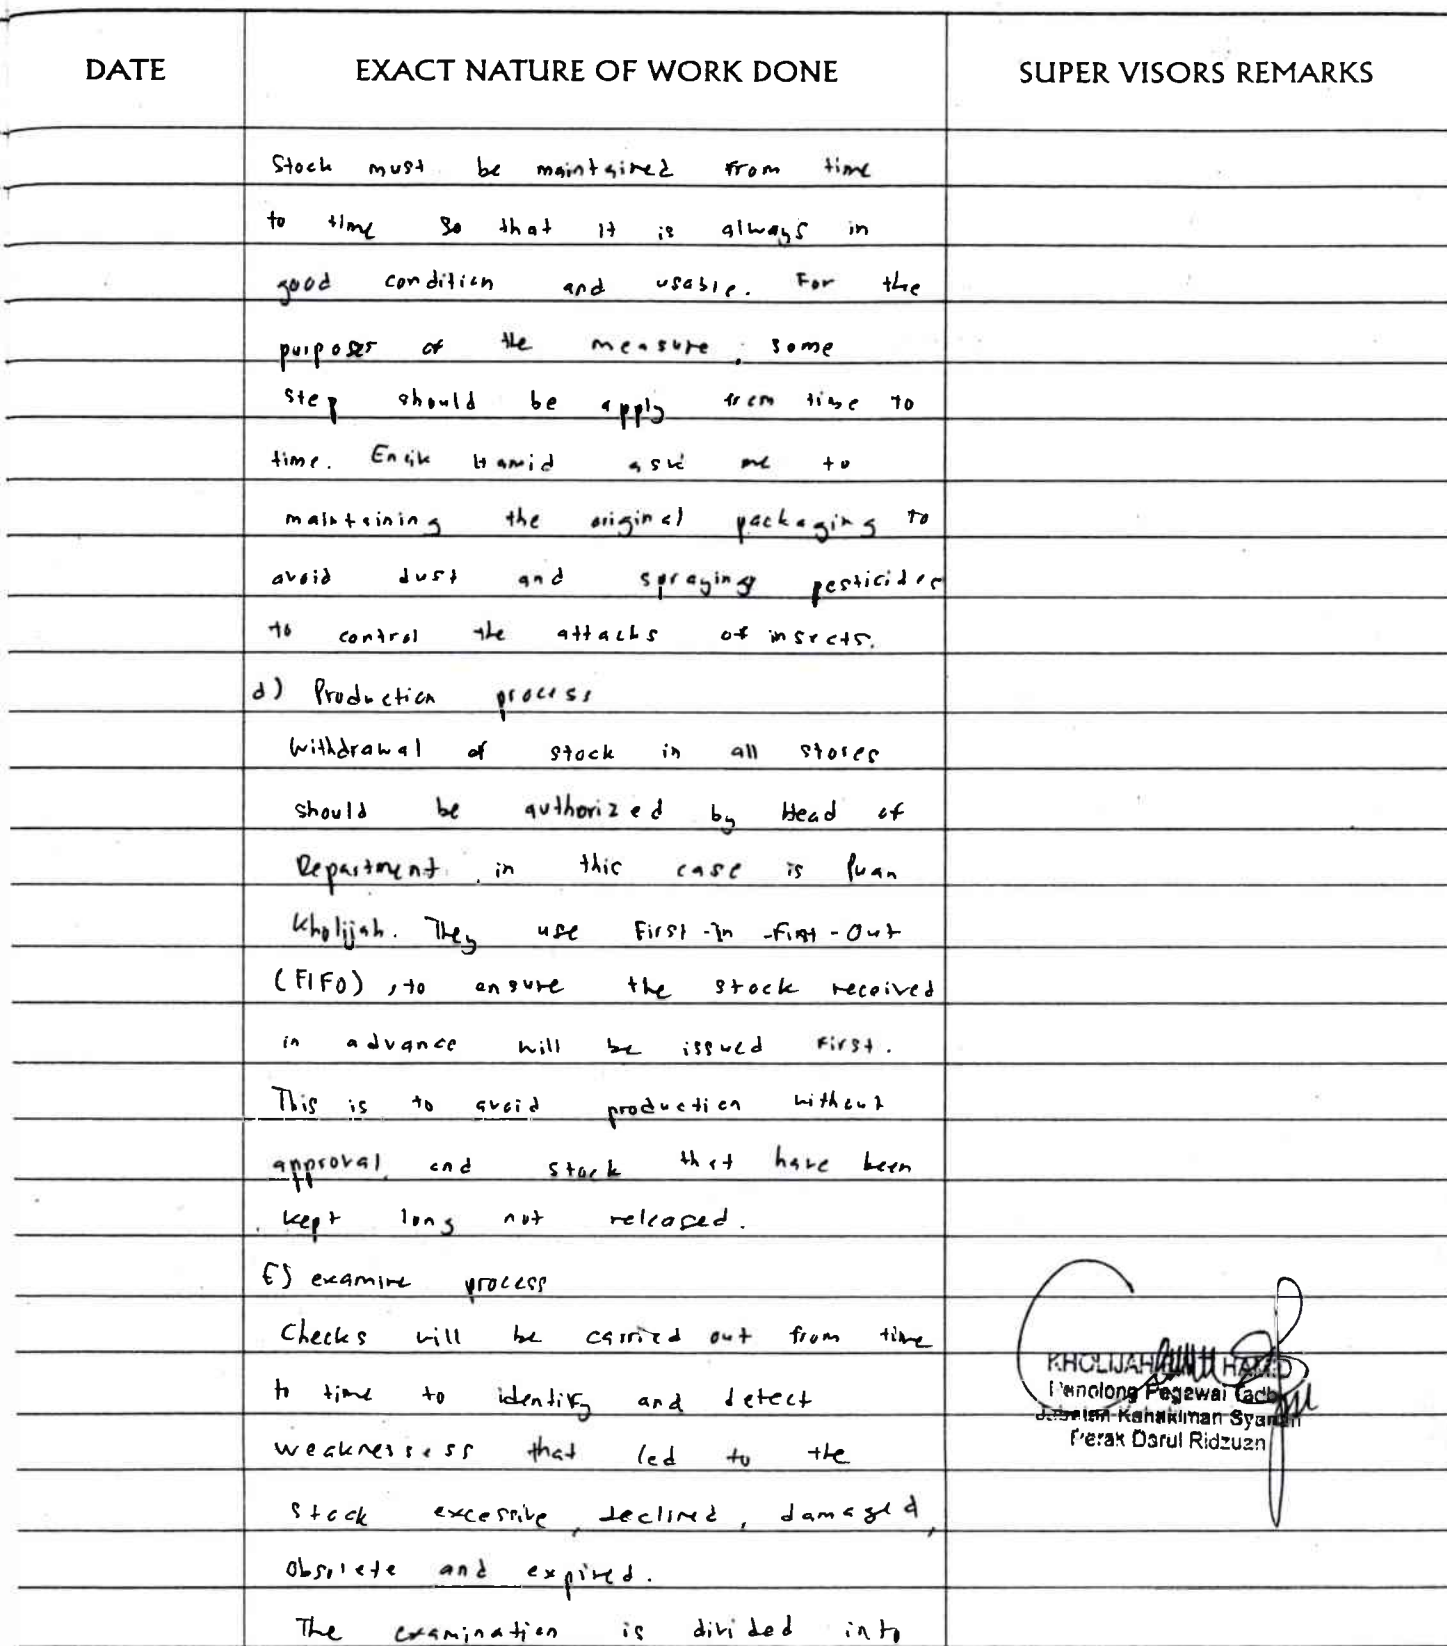 DATE EXACT NATURE OF WORK DONE SUPER VISORS REMARKS
Stock must be maintained from time
to time so that it is always in
good condition and usable. For the
purposes of the measure, some
step should be apply from time to
time. Encik Hamid ask me to
maintaining the original packaging to
avoid dust and spraying pesticides
to control the attacks of insects.
d) Production process
Withdrawal of stock in all stores
should be authorized by Head of
Department, in this case is Puan
Kholijah. They use First-In-First-Out
(FIFO), to ensure the stock received
in advance will be issued first.
This is to avoid production without
approval and stock that have been
kept long not released.
E) examine process
Checks will be carried out from time
to time to identify and detect
weaknessess that led to the
stock excessive, declined, damaged,
obsolete and expired.
The examination is divided into
KHOLIJAH HAMID
Penolong Pegawai Tadbir
Jabatan Kehakiman Syariah
Perak Darul Ridzuan